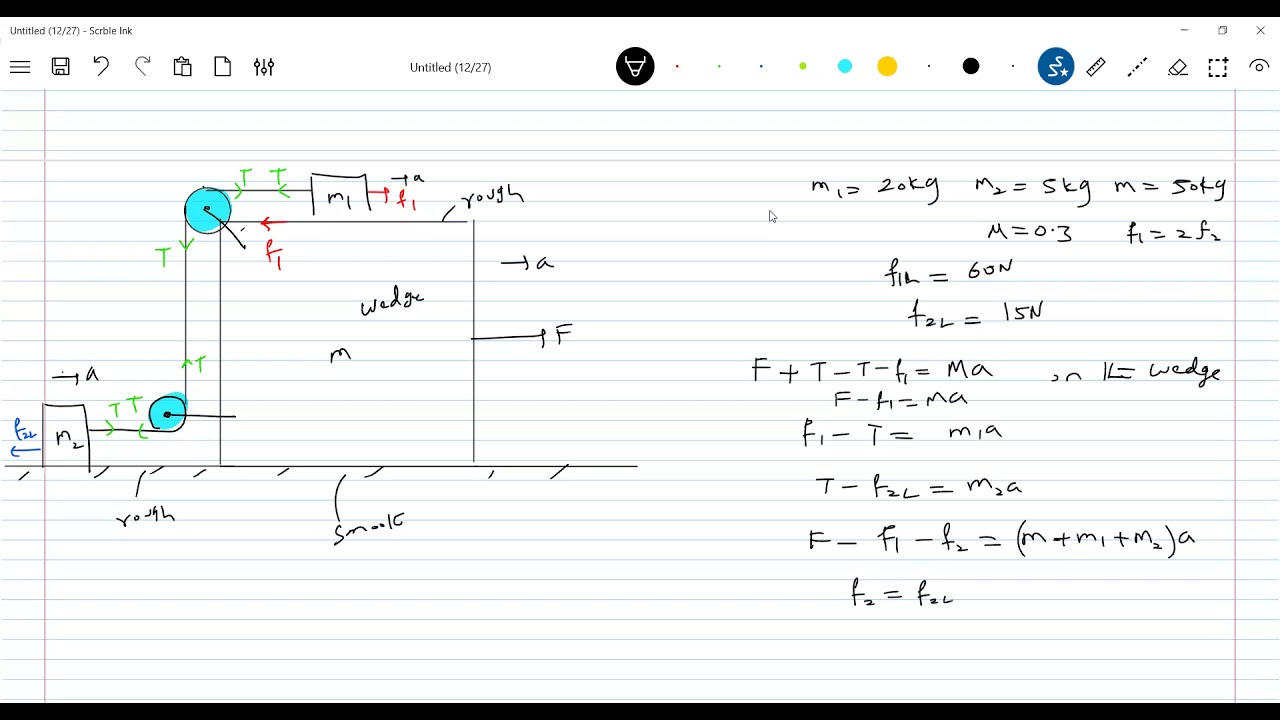 Untitled (12/27) - Scrble Ink
Untitled (12/27)
T T m₁ → a
f₁
rough
T
f₁
→ a
wedge
F
m
T
→ a
T T
f₂L
m₂
rough
smooth
m₁ = 20kg m₂ = 5kg m = 50kg
μ = 0.3 f₁ = 2f₂
f₁L = 60N
f₂L = 15N
F + T - T - f₁ = Ma wedge
F - f₁ = Ma
f₁ - T = m₁a
T - f₂L = m₂a
F - f₁ - f₂ = (m + m₁ + m₂)a
f₂ = f₂L